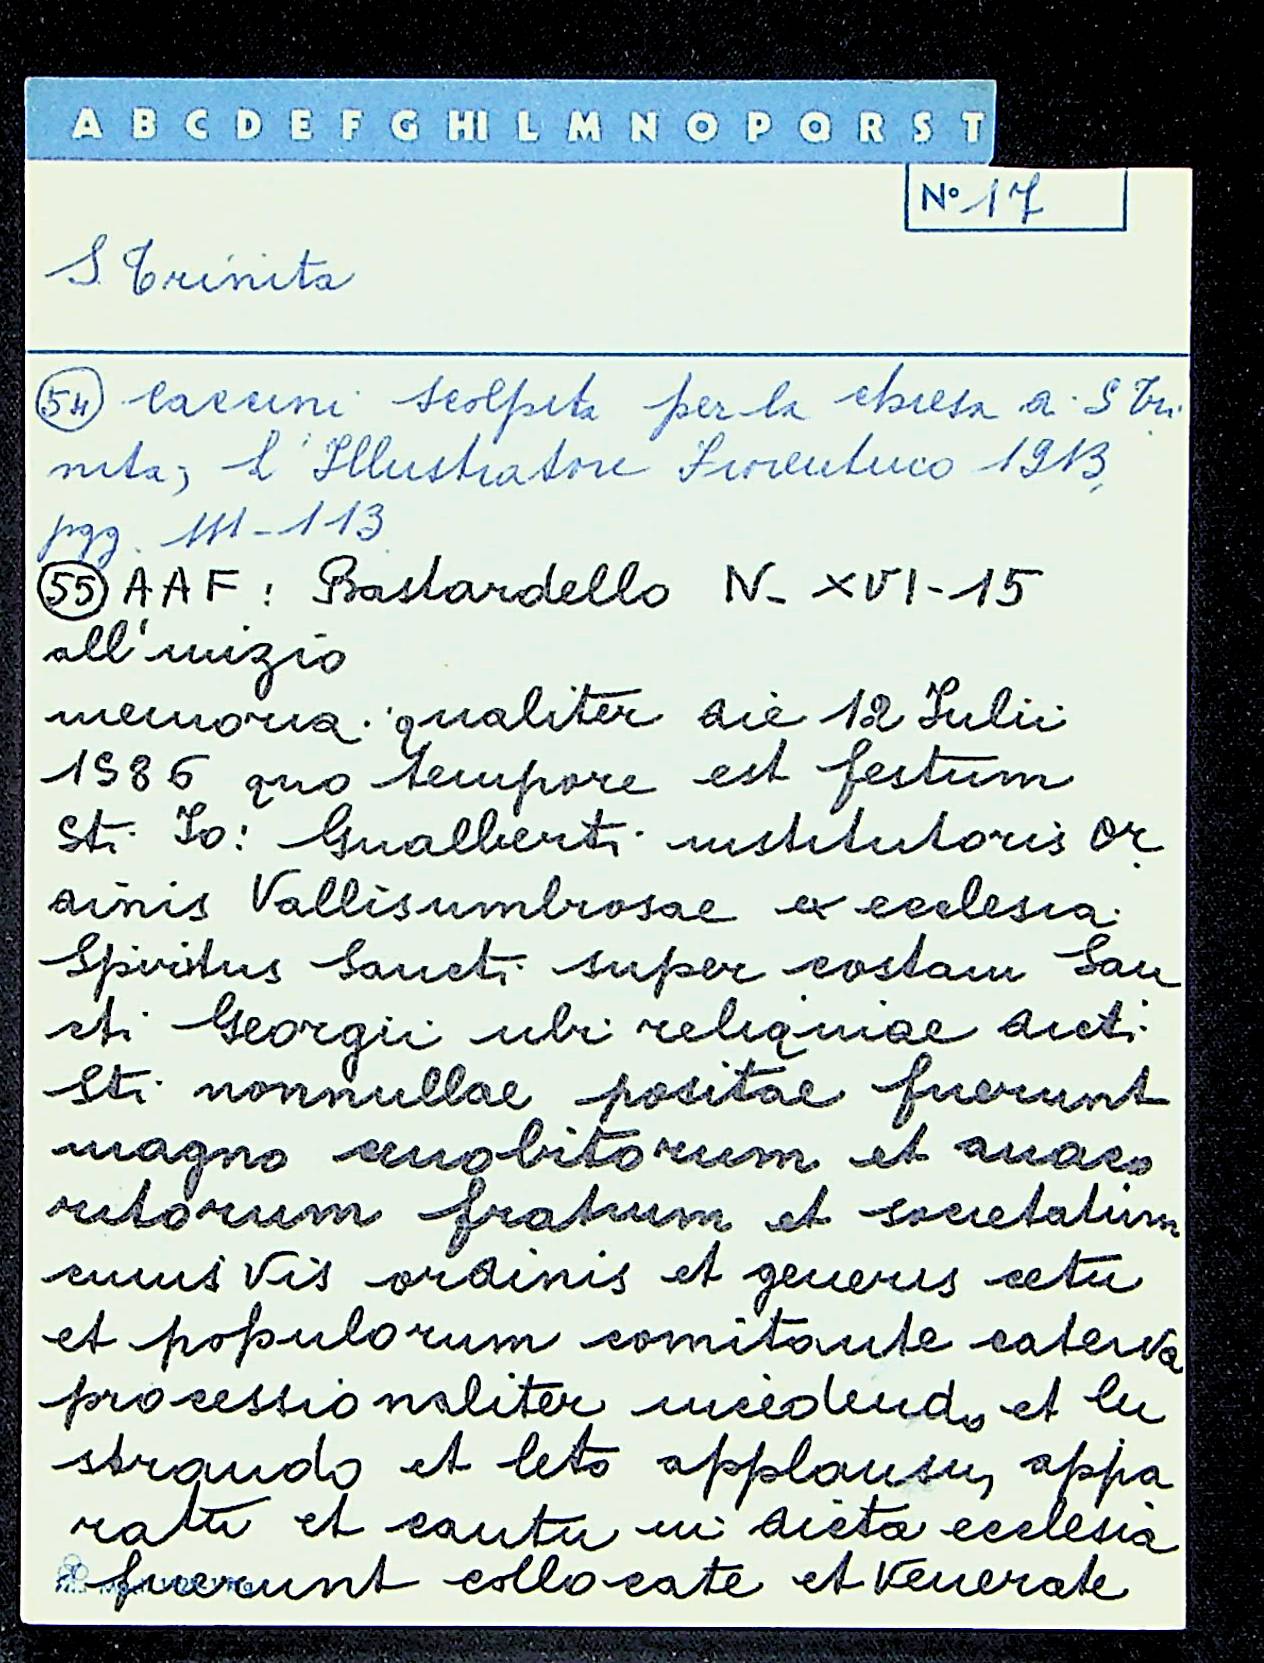 A B C D E F G HI L M N O P Q R S T
N° 17
S. Trinita
54 Caccini scolpita per la chiesa a S Tri
nita; L'Illustratore Fiorentino 1913,
pgg. 111-113
55 AAF: Bastardello N- XVI-15
all'inizio
memoria qualiter die 12 Iulii
1586 quo tempore est festum
Sti Io: Gualberti institutoris Or
dinis Vallisumbrosae ex ecclesia
Spiritus Sancti super costam San
cti Georgii ubi reliquiae dicti
Sti nonnullae positae fuerunt
magno cenobitorum et anaco
ritorum fratrum et societatum
cuius vis ordinis et generis cetu
et populorum comitante caterva
processionaliter incedendo et lu
strando et leto applausu, appa
ratu et cantu in dicta ecclesia
fuerunt collocate et venerate